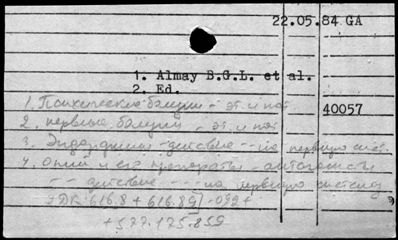 22.05.84 GA
1. Almay B.G.L. et al.
2. Ed.
1. Психические болезни - эт. и пат.
40057
2. нервные болезни - эт. и пат
3. Эндорфины - действие -- на нервную сист.
4. Опий и его препараты - антагонисты
-- действие -- на нервную систему
УДК 616.8 + 616.89] -092 +
+ 577.175.859